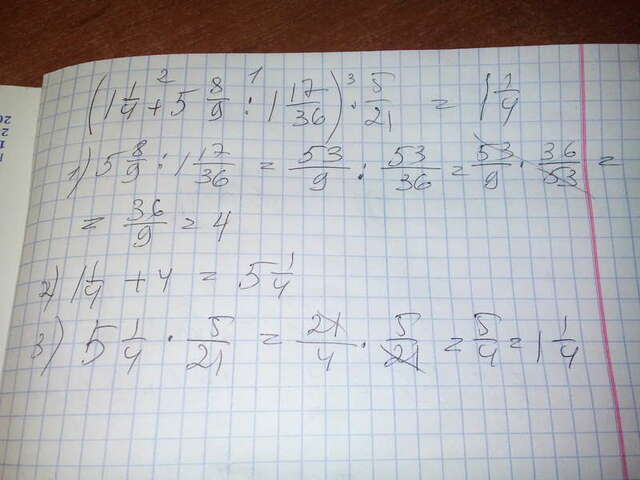 (1 1/4 + 5 8/9 : 1 17/36) · 5/21 = 1 1/4
2 1 3
1) 5 8/9 : 1 17/36 = 53/9 : 53/36 = 53/9 · 36/53 =
= 36/9 = 4
2) 1 1/4 + 4 = 5 1/4
3) 5 1/4 · 5/21 = 21/4 · 5/21 = 5/4 = 1 1/4